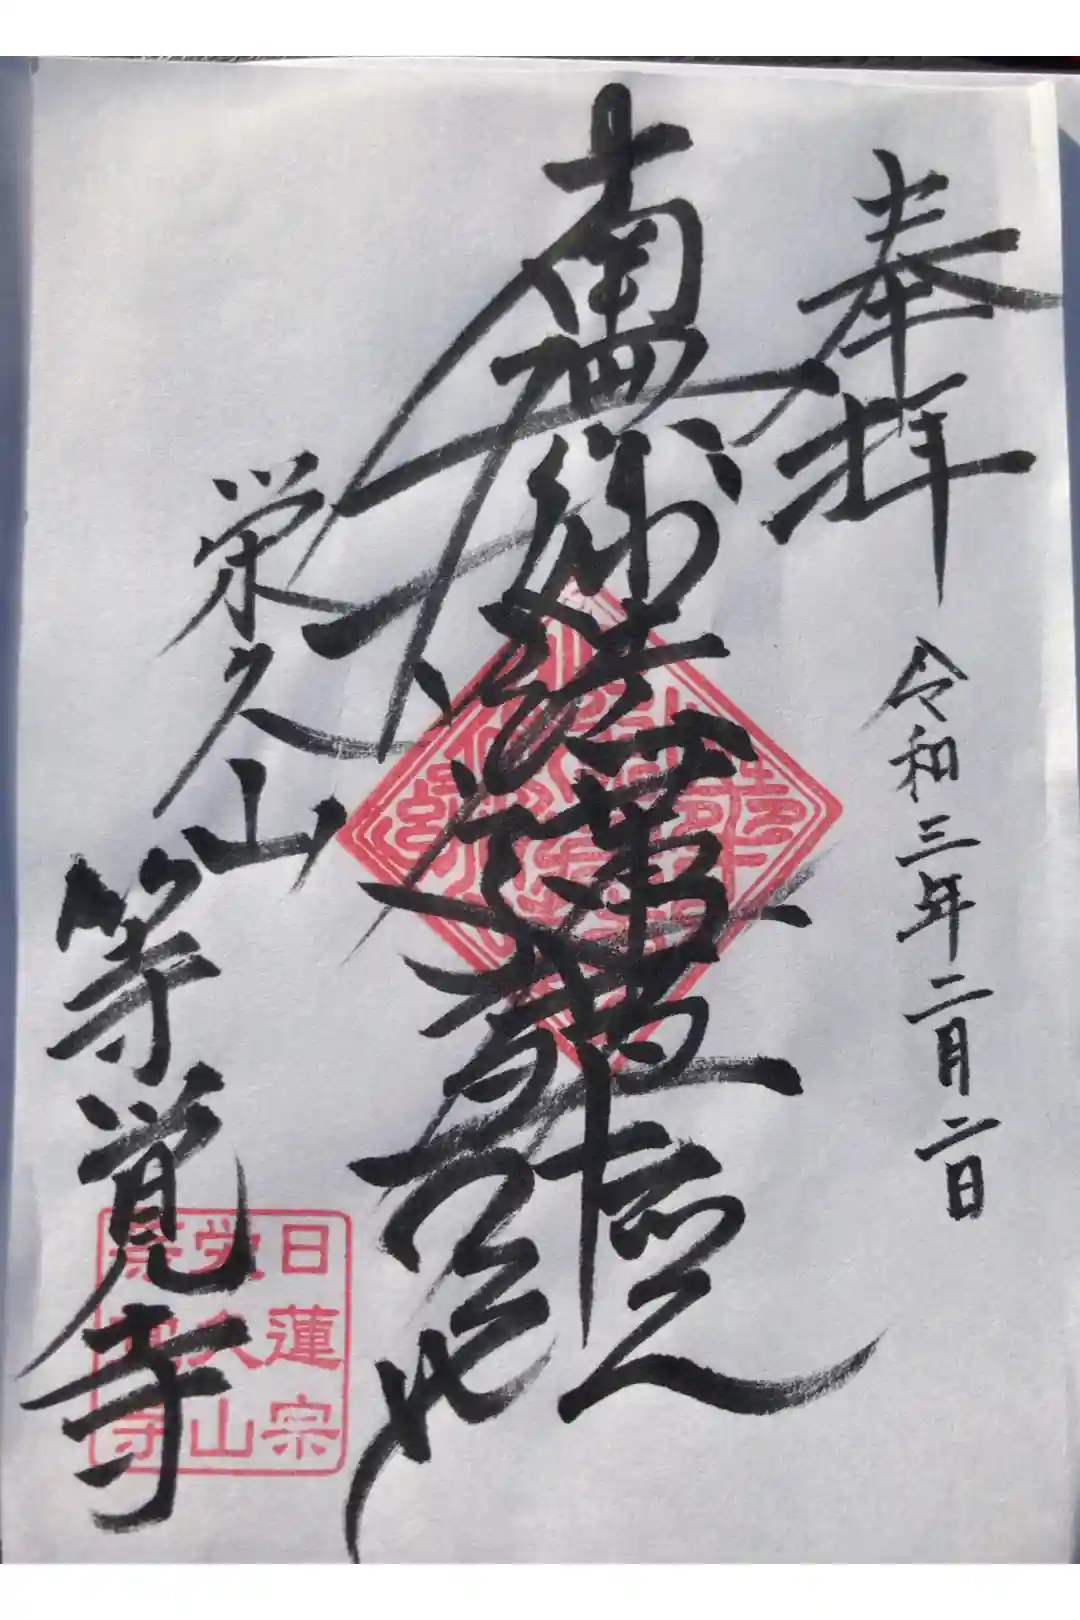 奉拝
令和三年二月二日
南無妙法蓮華経
栄久山
等覚寺
日蓮宗
栄久山
等覚寺